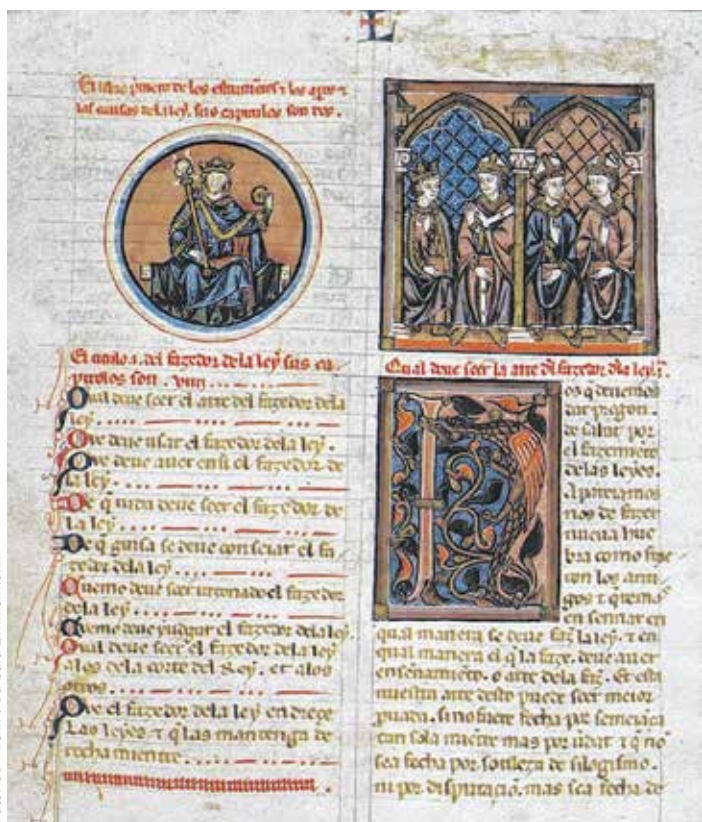 L
El libro primero de los estrumentos τ los aptes τ
las causas dela ley. sus capitulos son dos.
El titulo .i. del fazedor dela ley sus ca
pitolos son . viiii
Qual deue seer el arte del fazedor dela
ley.
Que deue usar el fazedor dela ley.
Que deue auer en si el fazedor de
la ley
De q̄ uida deue seer el fazedor de
la ley
De q̄ guisa se deue conseiar el fa
zedor dela ley
Quemo deue seer el fazedor
dela ley
Quemo deue yudgar el fazedor dela ley.
Qual deue seer el fazedor dela ley
alos dela corte del Rey. et alos
otros
Que el fazedor dela ley enderece
Las leyes τ q̄ las mantenga de
recha miente
Qual deue seer la arte dl fazedor dla ley.
os q̄ deuemos
dar pregon
de salut por
el fazemiento
delas leyes.
Apareiamos
nos de fazer
nueua hue
bra como fize
ron los anti
gos τ quemo
ensennar en
qual manera se deue faz̄ la ley. τ en
qual manera el q̄ la faze. deue auer
ensenamiēto. o arte dela faz̄. Et esta
nuestra arte desto puede seer meior
. si no fuere fecha por semeiāça
tan sola miente mas por τ q̄ no
sea fecha por sotileza de silogismo.
ni por disputaciō. mas sea fecha de